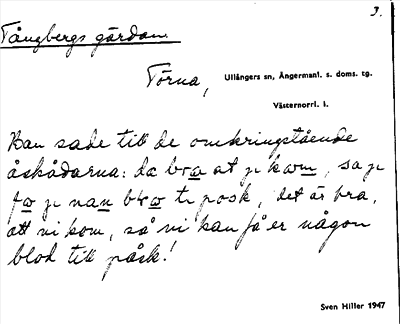 3.
Tångbergs gärdan
Törna,
Ullångers sn, Ångermanl. s. doms. tg.
Västernorrl. l.
Han sade till de omkringstående
åskådarna: da bra at je kom, sa je
fo je nan blo te posk, det är bra,
att ni kom, så vi kan få er någon
blod till påsk!
Sven Hiller 1947